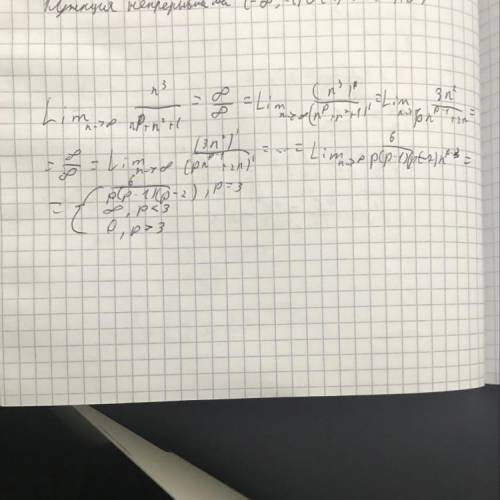 Функция непрерывна на (-∞,
Lim n→∞ n³/(n^p+n²+1) = ∞/∞ = Lim n→∞ (n³)'/(n^p+n²+1)' = Lim n→∞ 3n²/(pn^(p-1)+2n) =
= ∞/∞ = Lim n→∞ (3n²)'/(pn^(p-1)+2n)' = ... = Lim n→∞ 6/(p(p-1)(p-2)n^(p-3)) =
= { 6/(p(p-1)(p-2)), p=3
∞, p<3
0, p>3